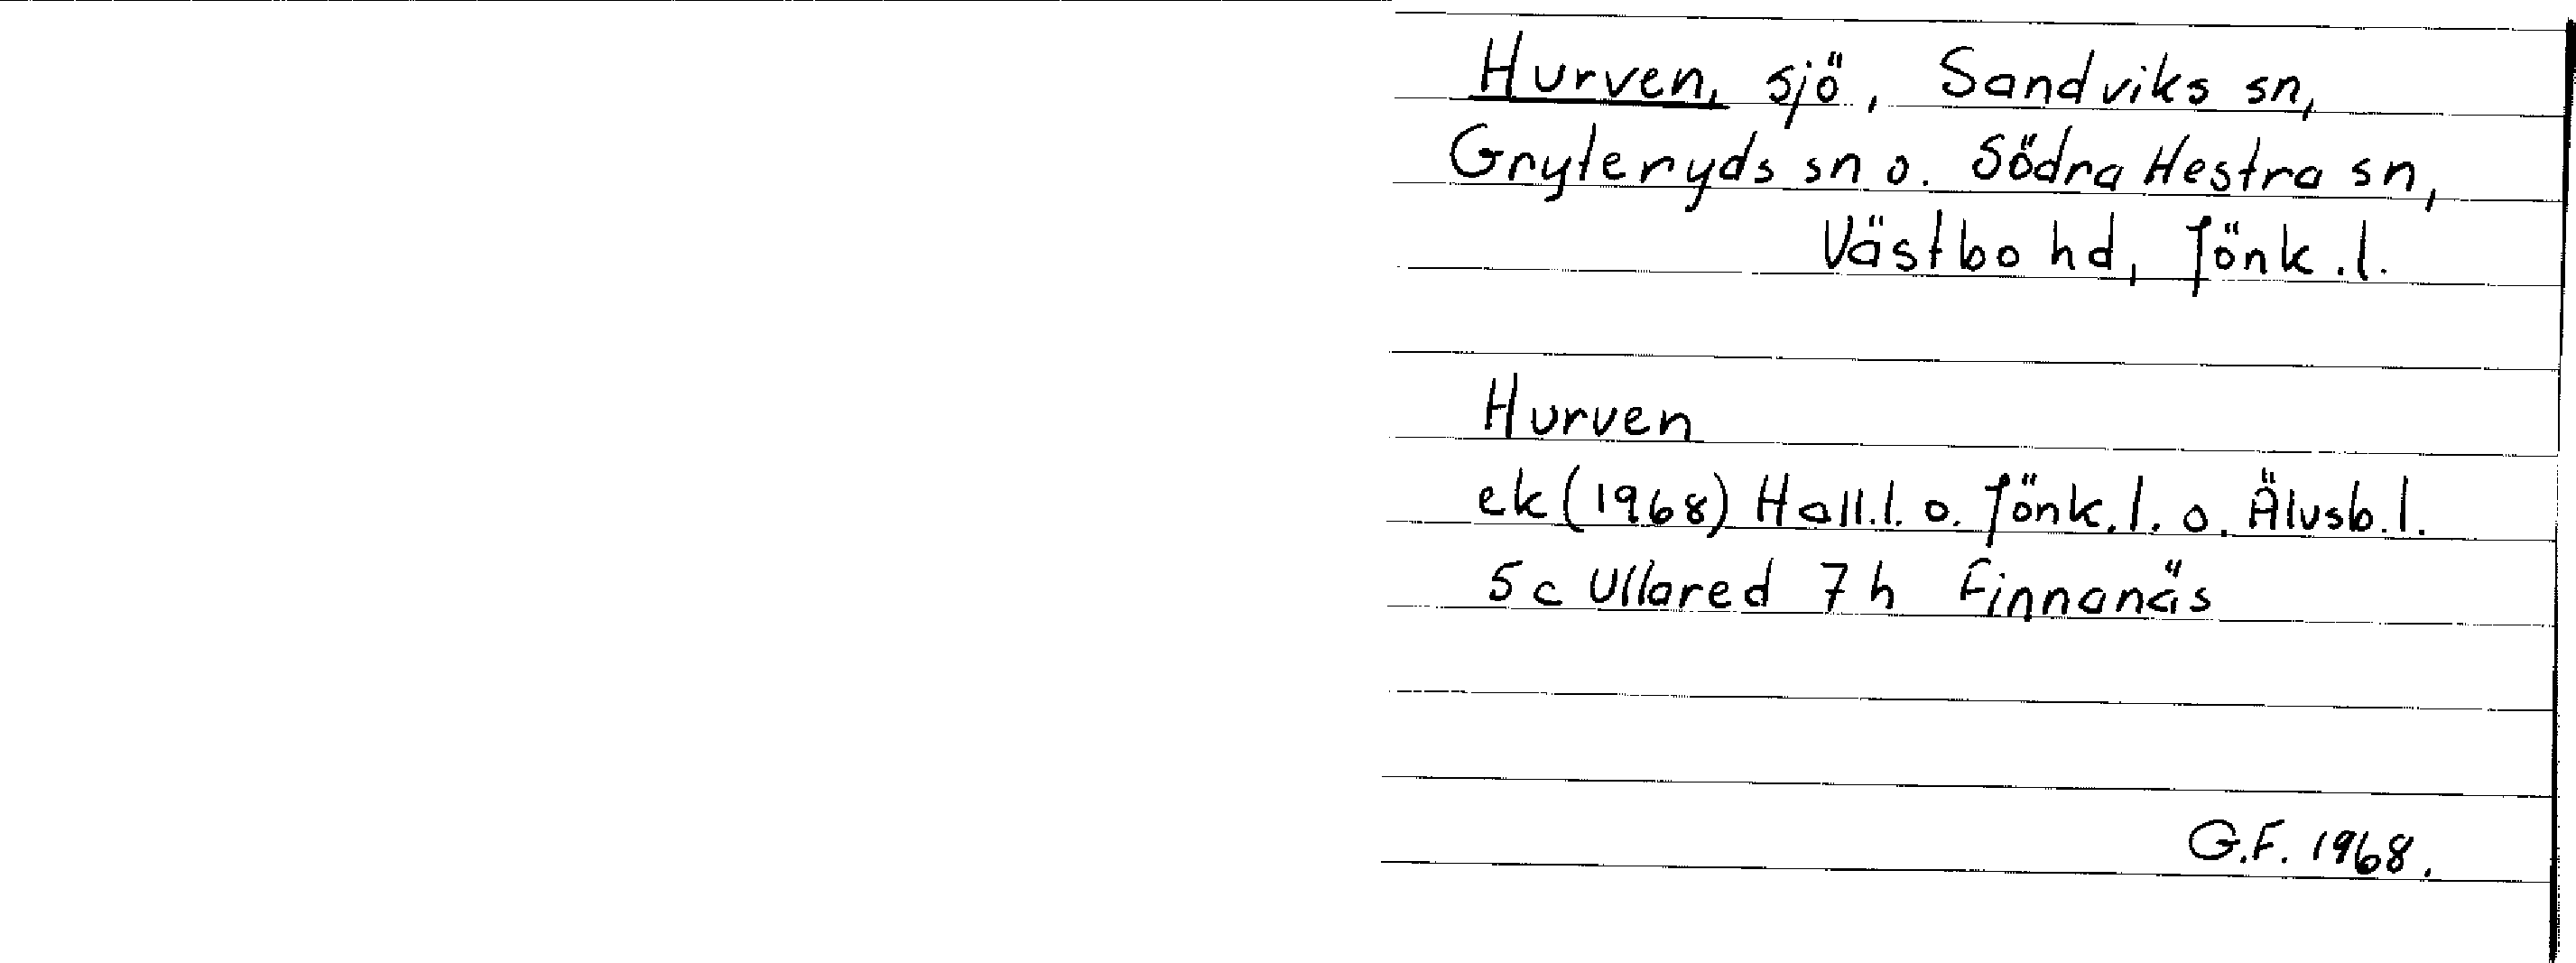 Hurven, sjö, Sandviks sn,
Gryteryds sn o. Södra Hestra sn,
Västbo hd, Jönk.l.
Hurven
ek (1968) Hall.l. o. Jönk.l. o. Älvsb.l.
5c Ullared 7h Finnanäs
G.F. 1968.